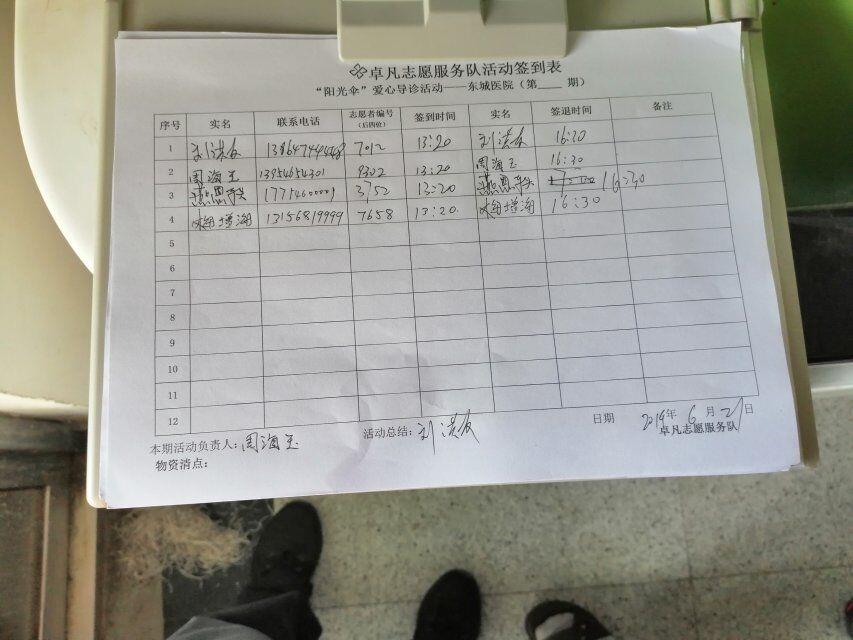 卓凡志愿服务队活动签到表
“阳光伞”爱心导诊活动——东城医院(第____期)
序号 实名 联系电话 志愿者编号(后四位) 签到时间 实名 签退时间 备注
1 7012 13:20 16:20
2 周海玉 13954654301 9302 13:20 周海玉 16:30
3 17754600001 3752 13:20 17:00 16:30
4 13156819999 7658 13:20 16:30
5
6
7
8
9
10
11
12
本期活动负责人:周海玉 活动总结: 日期 2019年6月21日
物资清点: 卓凡志愿服务队